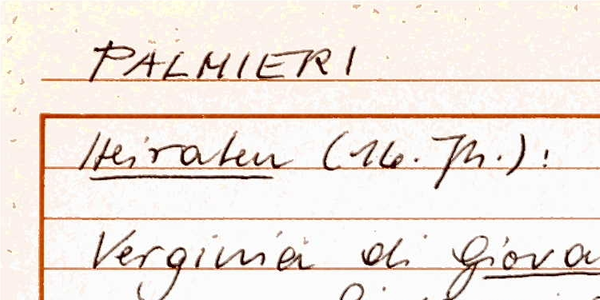 PALMIERI
Heiraten (16. Jh.):
Verginia di Giova